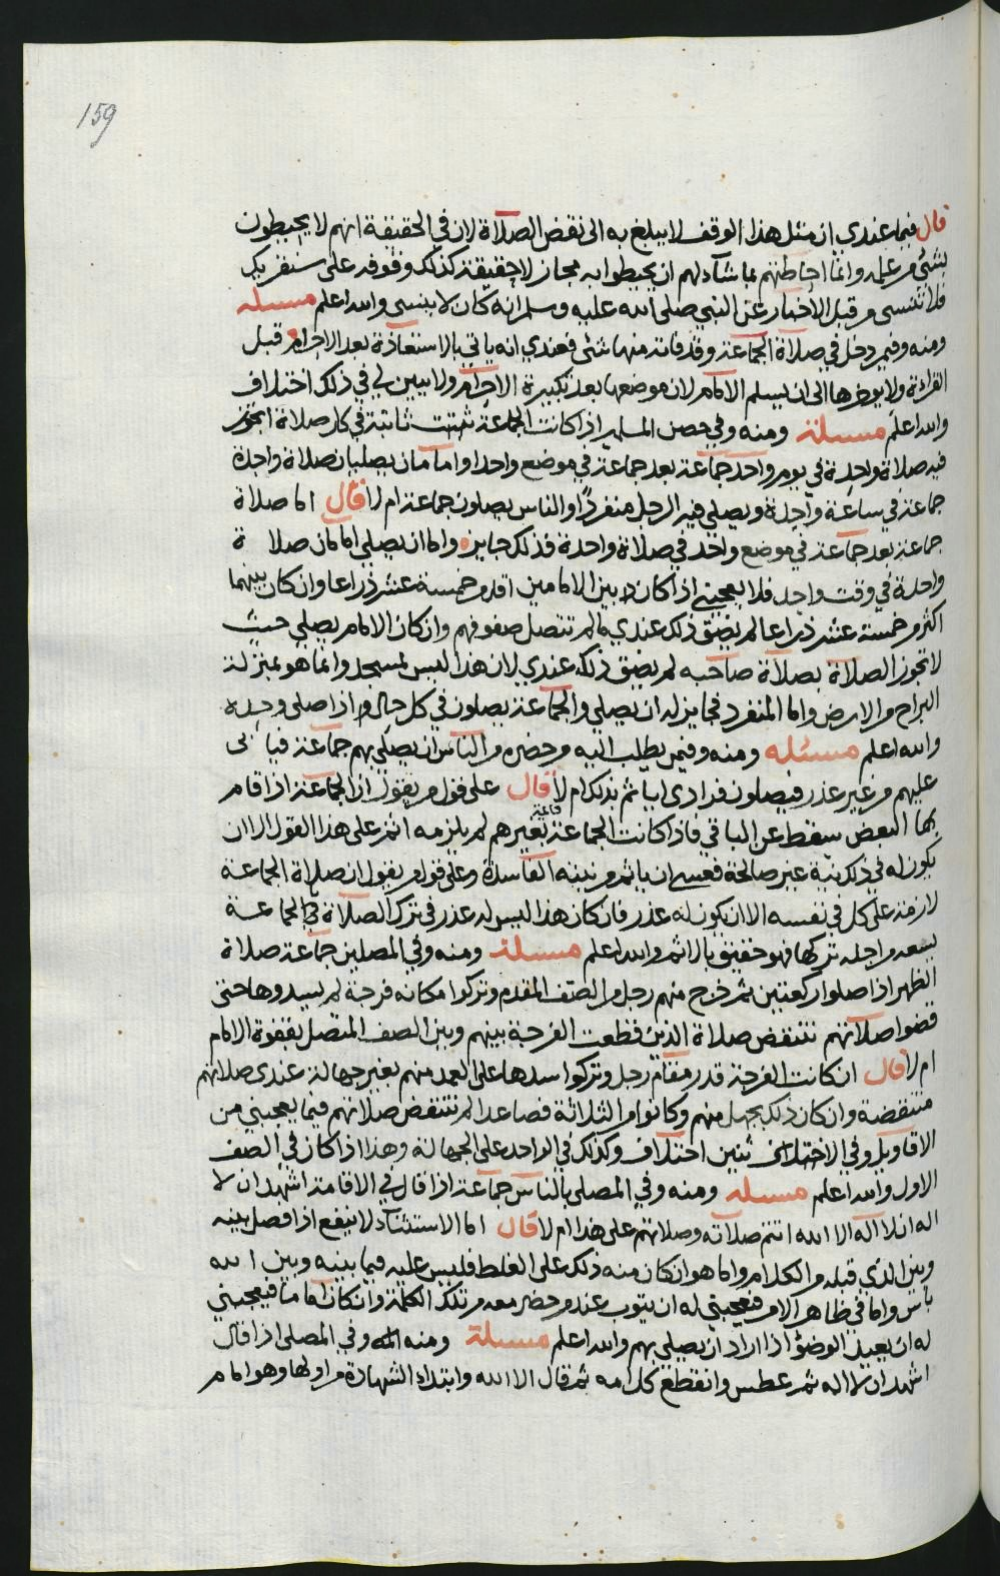 159
قال فيما عندي ان مثل هذا الوقف لا يبلغ به الى نقض الصلاة لان في الحقيقة انهم لا يحيطون
بشئ من علمه وانما احاطتهم بما شآء لهم ان يحيطوا به مجاز لا حقيقة كذلك وقوفه على سنقريك
فلا تنسى من قبل الاخبار عن النبي صلى الله عليه وسلم انه كان لا ينسى والله اعلم مسئله
ومنه وفيمن دخل في صلاة الجماعة وقد فاته منها شئ فعندي انه ياتي بالاستعاذة بعد الاحرام قبل
القراءة ولا يوخرها الى ان يسلم الامام لان موضعها بعد تكبيرة الاحرام ولا يبين لي في ذلك اختلاف
والله اعلم مسئلة ومنه وفي حصن المسلمين اذا كانت الجماعة ثبتت ثابتة في كل صلاة ايجوز
فيه صلاة واحدة في يوم واحد جماعة بعد جماعة في موضع واحد او امامان يصليان صلاة واحدة
جماعة في ساعة واحدة ويصلي فيه الرجل منفردًا والناس يصلون جماعة ام لا قال اما صلاة
جماعة بعد جماعة في موضع واحد في صلاة واحدة فذلك جايز واما ان يصلي امامان صلا ة
واحدة في وقت واحد فلا يعجبني اذا كان بين الامامين اقل من خمسة عشر ذراعا وان كان بينهما
اكثر من خمسة عشر ذراعا لم يضق ذلك عندي ما لم تتصل صفوفهم وان كان الامام يصلي حيث
لا تجوز الصلاة بصلاة صاحبه لم يضق ذلك عندي لان هذا ليس لمسجد وانما هو بمنزلة
البراح من الارض واما المنفرد فجايز له ان يصلي والجماعة يصلون في كل حال اذا صلى وحده
والله اعلم مسئله ومنه وفيمن يطلب اليه من حضره من الناس ان يصلي بهم جماعة فيا بى
عليهم من غير عذر فيصلون فرادى اياثم بذلك ام لا قال على قول من يقول ان الجماعة اذا قام
بها البعض سقط عن الباقي فاذا كانت الجماعة قائمة بغيرهم لم يلزمه اثم على هذا القول الا ان
يكون له في ذلك نية غير صالحة فعسى ان ياثم من نيته الفاسدة وعلى قول من يقول ان صلاة الجماعة
لازمة على كل في نفسه الا ان يكون له عذر فان كان هذا ليس له عذر في ترك الصلاة في الجماعة
يسعه من اجله تركها فهو حقيق بالاثم والله اعلم مسئلة ومنه وفي المصلين جماعة صلاة
الظهر اذا صلوا ركعتين ثم خرج منهم رجل من الصف المقدم وتركوا مكانه فرجة لم يسدوها حتى
قضوا صلاتهم تنتقض صلاة الذين قطعت الفرجة بينهم وبين الصف المتصل بقفوة الامام
ام لا قال ان كانت الفرجة قدر مقام رجل وتركوا سدها على العمد منهم بغير جهالة عندي صلاتهم
منتقضة وان كان ذلك بجهل منهم وكانوا من الثلاثة فصاعدا لم تنتقض صلاتهم فيما يعجبني من
الاقاويل وفي الاختلاف ثنين اختلاف وكذلك في الواحد على الجهالة وهذا اذا كان في الصف
الاول والله اعلم مسئله ومنه وفي المصلي بالناس جماعة اذا قال في الاقامة اشهد ان لا
اله ان لا اله الا الله اتتم صلاته وصلاتهم على هذا ام لا قال اما الاستثناء لا ينفع اذا فصل بينه
وبين الذي قبله من الكلام واما هو ان كان منه ذلك على الغلط فليس عليه فيما بينه وبين الله
باس واما في ظاهر الامر فيعجبني له ان يتوب عند من حضر معه من تلك الكلمة وان كان اماما فيعجبني
له ان يعيد الوضؤ اذا اراد ان يصلي بهم والله اعلم مسئلة ومنه وفي المصلي اذا قال
اشهد ان لا اله ثم عطس وانقطع كلامه ثم قال الا الله وابتداء الشهادة من اولها وهو امام